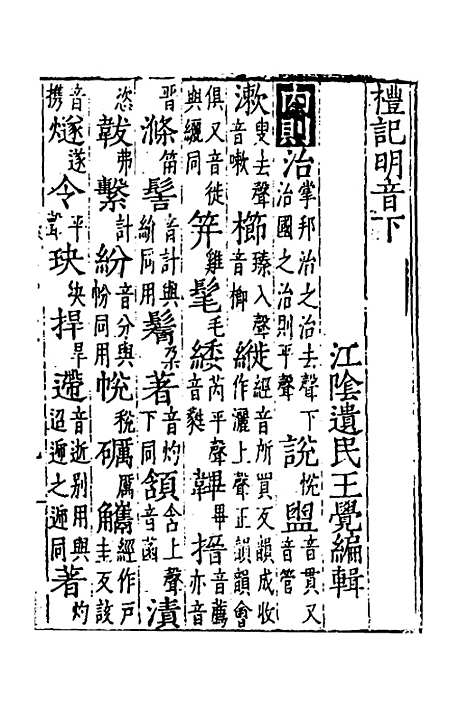 禮記明音下
江陰遺民王覺編輯
內則 治掌邦治之治去聲下治國之治則平聲 說悅 盥音貫又音管
漱叟去聲音嗽 櫛臻入聲音櫛 縰經音所買反韻成收作灑上聲正韻韻會
俱又音徙與纚同 笄雞 髦毛 緌芮平聲音甤 鞸畢 搢音薦亦音
晋 滌笛 髻音計與紛同用 鬌朶 著音灼下同 頷含上聲音菡 漬
恣 韍弗 繫計 紛音分與帉同用 帨稅 礪厲 觿經作戸圭反該
音携 燧遂 令平聲 玦决 捍旱 遰音逝别用與迢遞之遞同 著灼